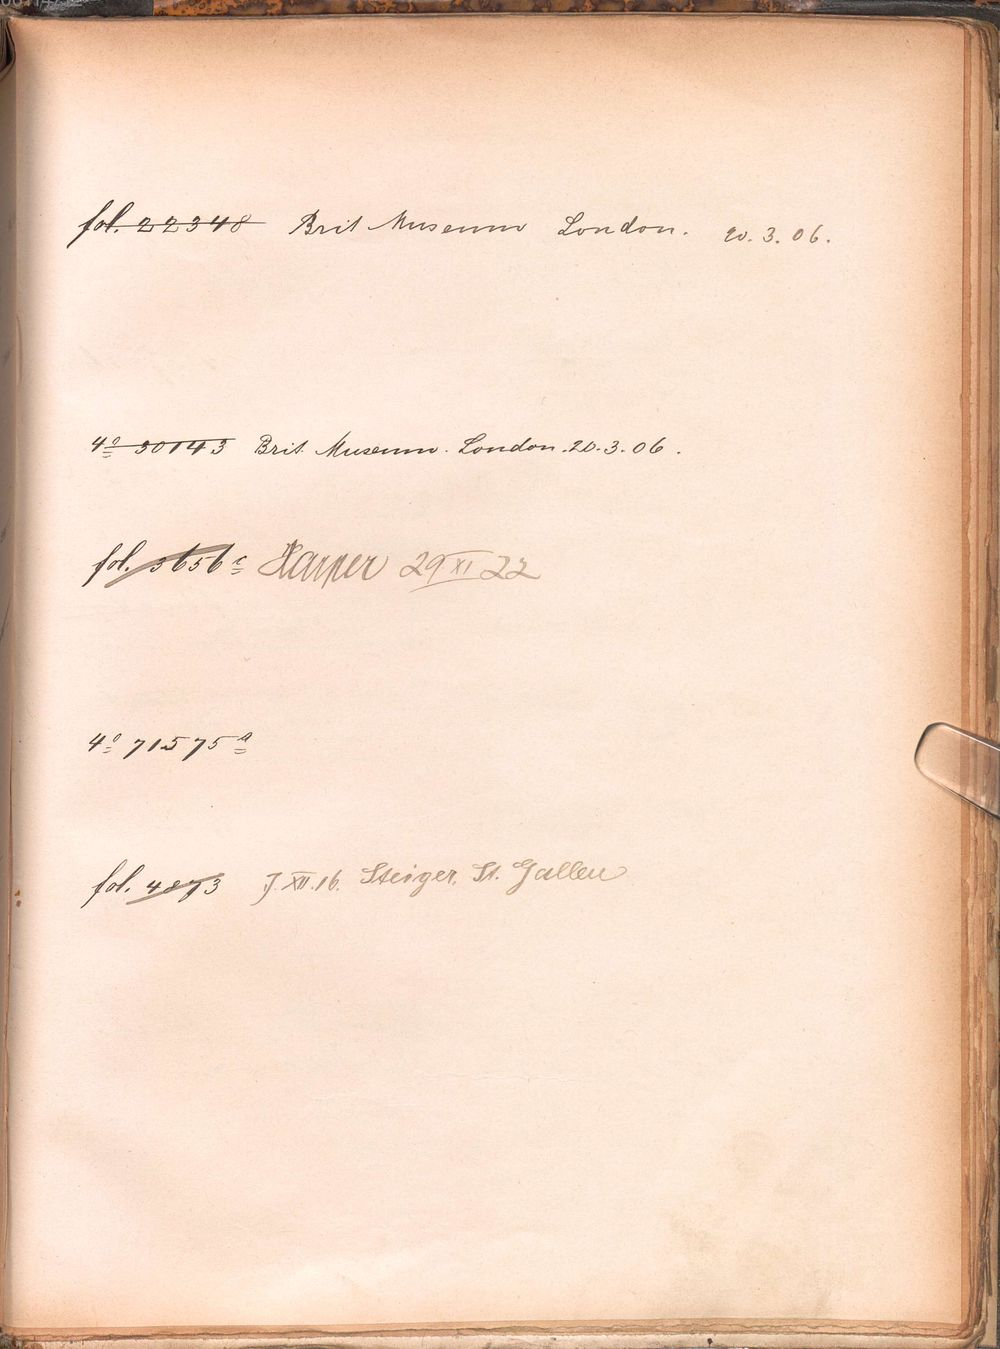 fol. 22348 Brit Museum London. 20.3.06.
4º 30143 Brit. Museum. London. 20.3.06.
fol. 5656 c Harper 29 XI 22
4º 71575 a
fol. 4873 7. XII. 16. Steiger, St. Gallen